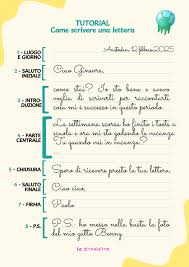 TUTORIAL
Come scrivere una lettera
1 - LUOGO E GIORNO
Amsterdam, 12 febbraio 2025
2 - SALUTO INIZIALE
Ciao Ginevra,
3 - INTRODUZIONE
come stai? Io sto bene e avevo
voglia di scriverti per raccontarti
cola mi è successo in questo periodo.
4 - PARTE CENTRALE
La settimana scorsa ho finito i testi a
scuola e ora mi sto godendo le vacanze.
Tu quando vai in vacanza?
5 - CHIUSURA
Spero di ricevere presto la tua lettera.
6 - SALUTO FINALE
Ciao ciao,
7 - FIRMA
Paolo
8 - P.S.
P.S.: ho messo nella busta la foto
del mio gatto Benny.